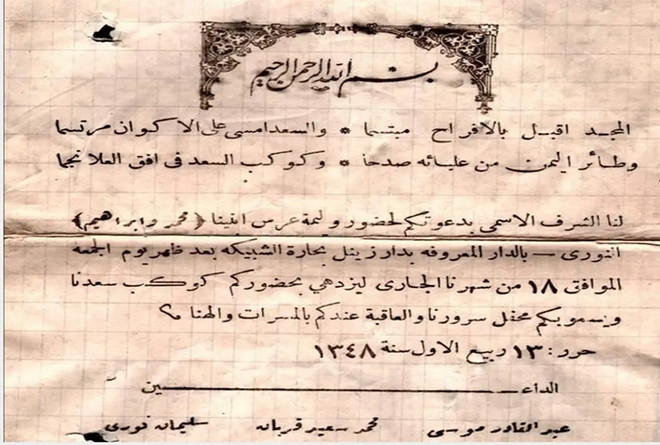 بسم الله الرحمن الرحيم
المجد اقبل بالافراح مبتسما * والسعد امسى على الاكوان مرتسما
وطائر اليمن من عليائه صدحا * وكوكب السعد فى افق العلا نجما
لنا الشرف الاسمى بدعوتكم لحضور وليمة عرس ابنينا (محمد وابراهيم)
النورى — بالدار المعروفه بدار زينل بحارة الشبيكه بعد ظهر يوم الجمعه
الموافق ١٨ من شهرنا الجارى ليزدهي بحضوركم كوكب سعدنا
ويسمو بكم محفل سرورنا والعاقبة عندكم بالمسرات والهنا
حرر: ١٣ ربيع الاول سنة ١٣٤٨
الداعــــين
عبد القادر موسى محمد سعيد قربان سليمان نورى